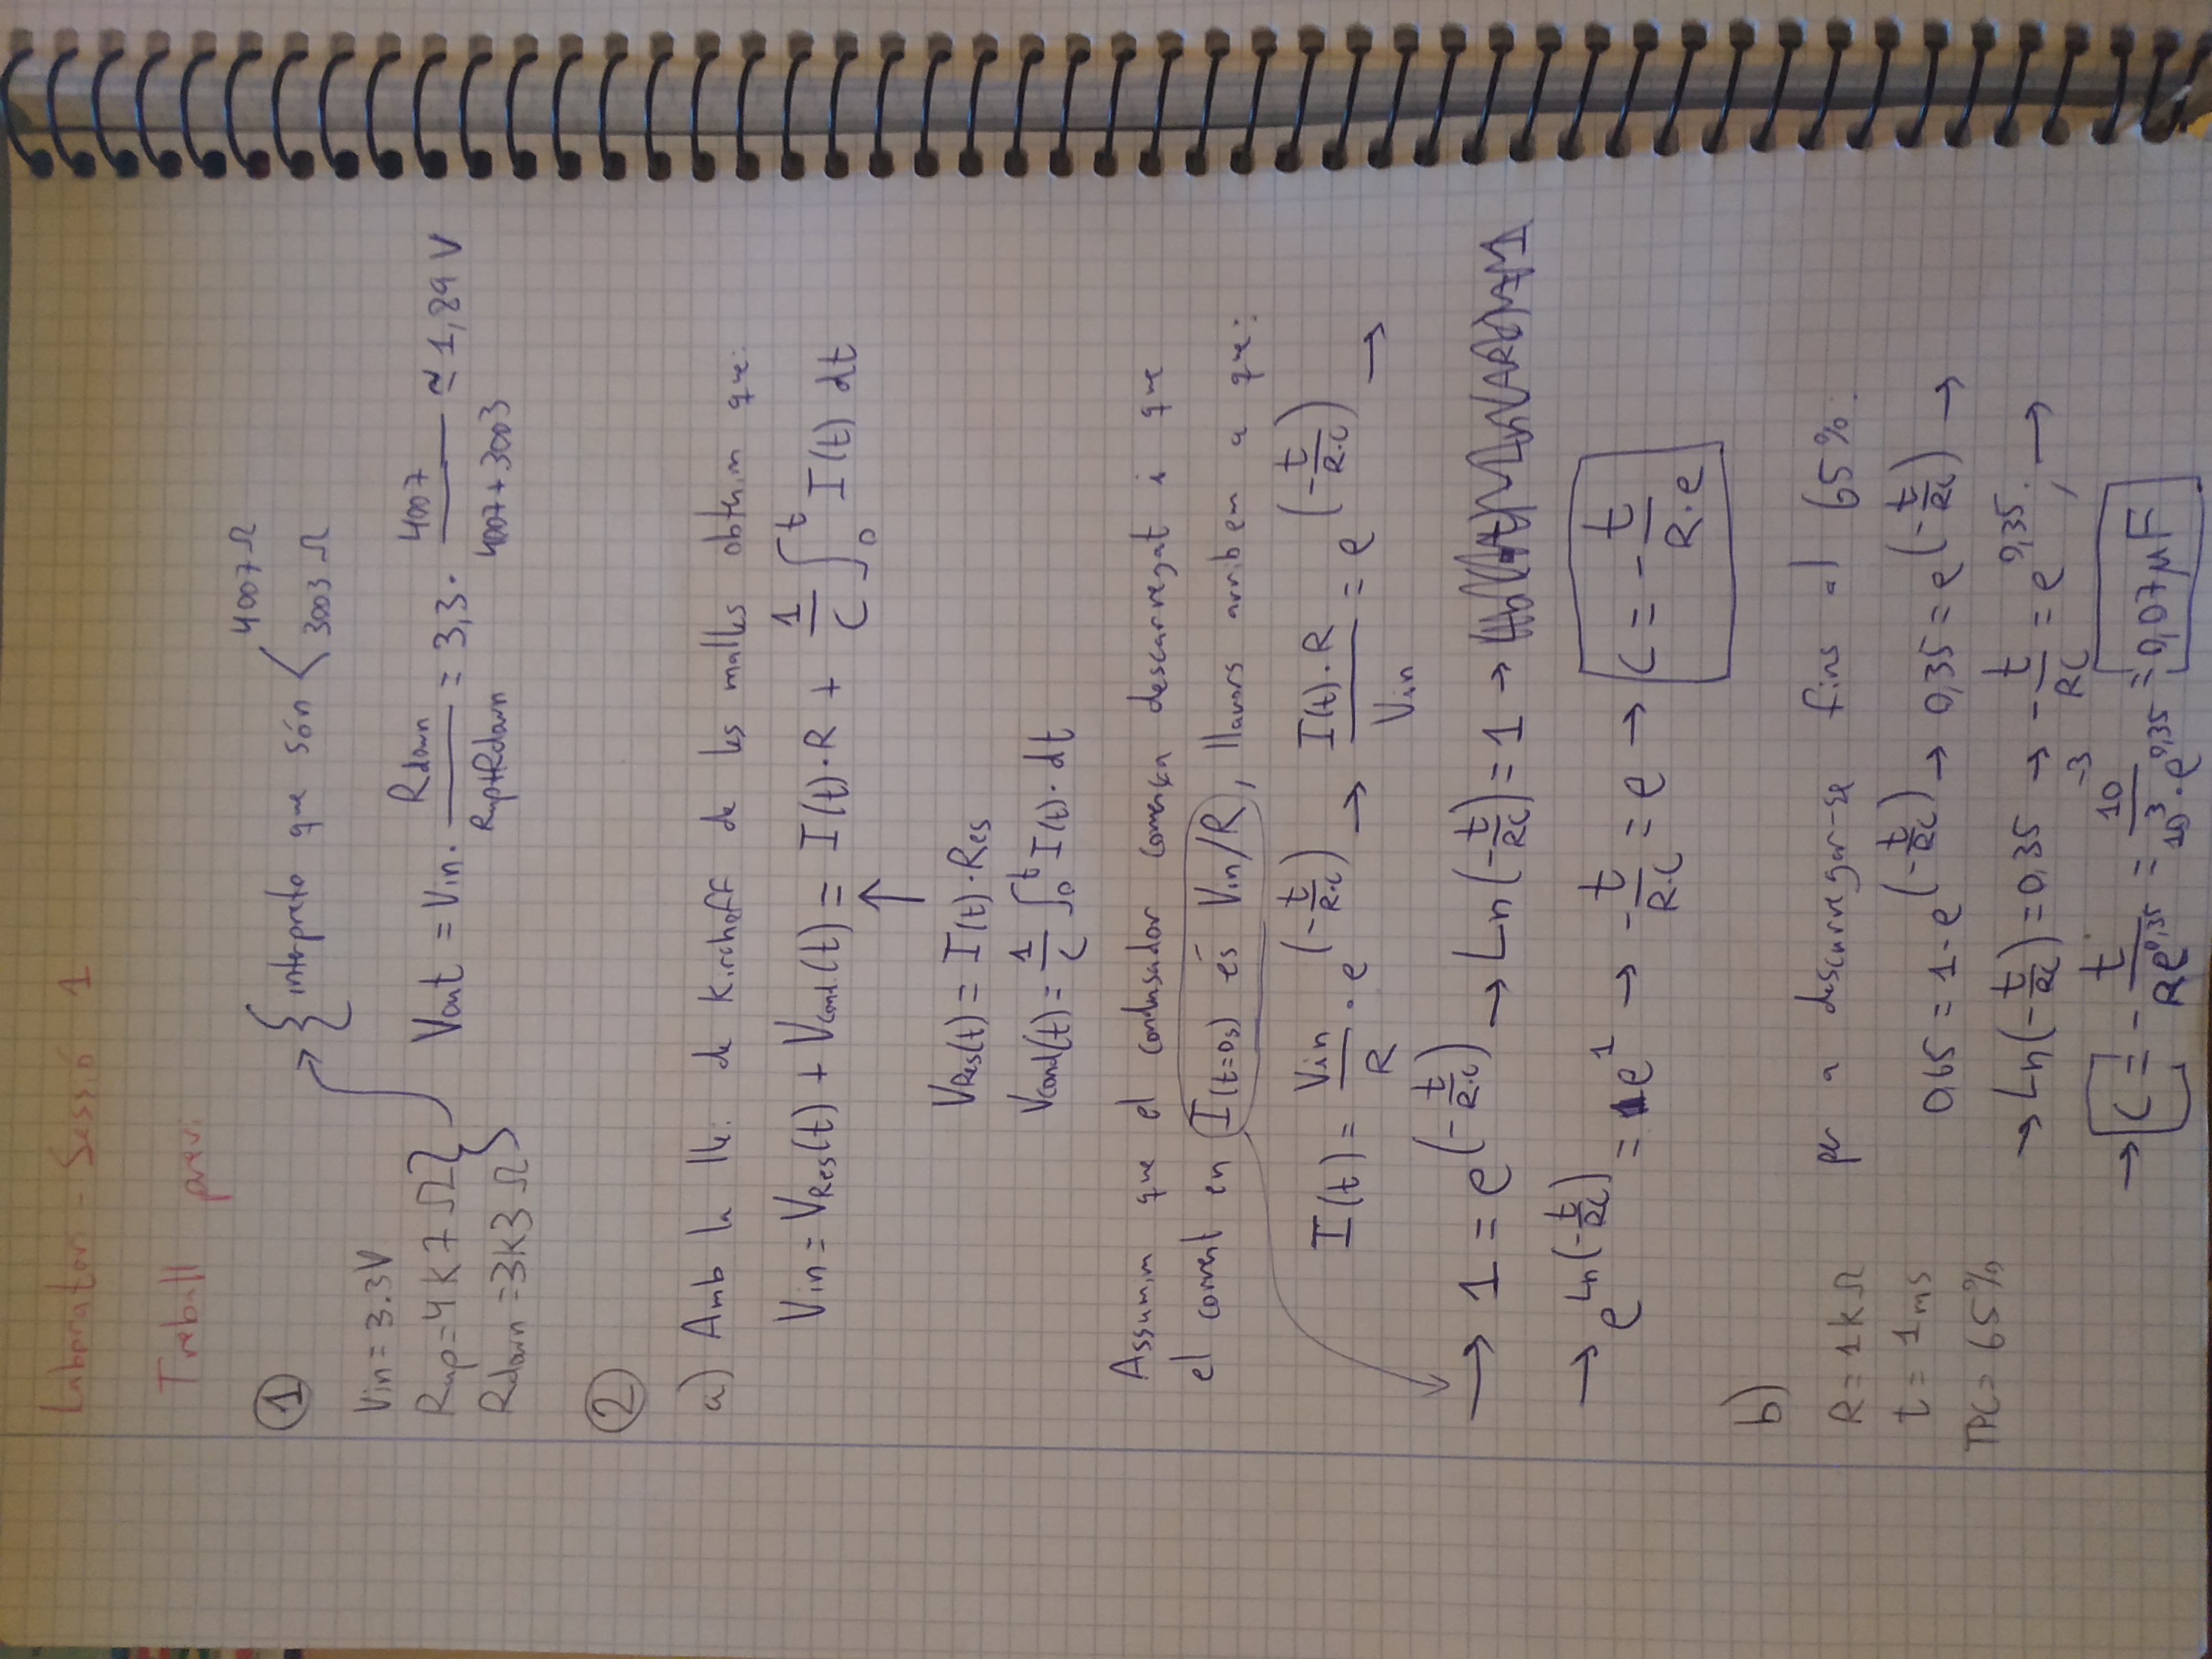 Laboratori - Sessió 1
Treball previ
1
{ interpreto que són < 4007 Ω
3003 Ω
Vin = 3.3V
Rup = 4K7 Ω
Rdown = 3K3 Ω
Vout = Vin · Rdown / (Rup+Rdown) = 3,3 · 4007 / (4007 + 3003) ≃ 1,89 V
2
a) Amb la llei de Kirchoff de les malles obtenim que:
Vin = VRes(t) + VCond.(t) = I(t)·R + 1/C ∫₀ᵗ I(t) dt
↑
VRes(t) = I(t)·Res
Vcond(t) = 1/C ∫₀ᵗ I(t)· dt
Assumim que el condensador comença descarregat i que
el corrent en I(t=0s) és Vin/R, llavors arribem a que:
I(t) = Vin/R · e^(-t/R·C) → I(t)·R / Vin = e^(-t/R·C) →
→ 1 = e^(-t/R·C) → Ln(-t/RC) = 1 →
→ e^Ln(-t/RC) = e^1 → -t/R·C = e → C = - t/R·e
b)
R = 1kΩ
t = 1ms
TPC = 65%
per a descarregar-se fins al 65%:
0,65 = 1 - e^(-t/RC) → 0,35 = e^(-t/RC) →
→ Ln(-t/RC) = 0,35 → -t/RC = e^0,35; →
→ C = - t/Re^0,35 = 10^-3 / 10^3·e^0,35 = 0,07 μF